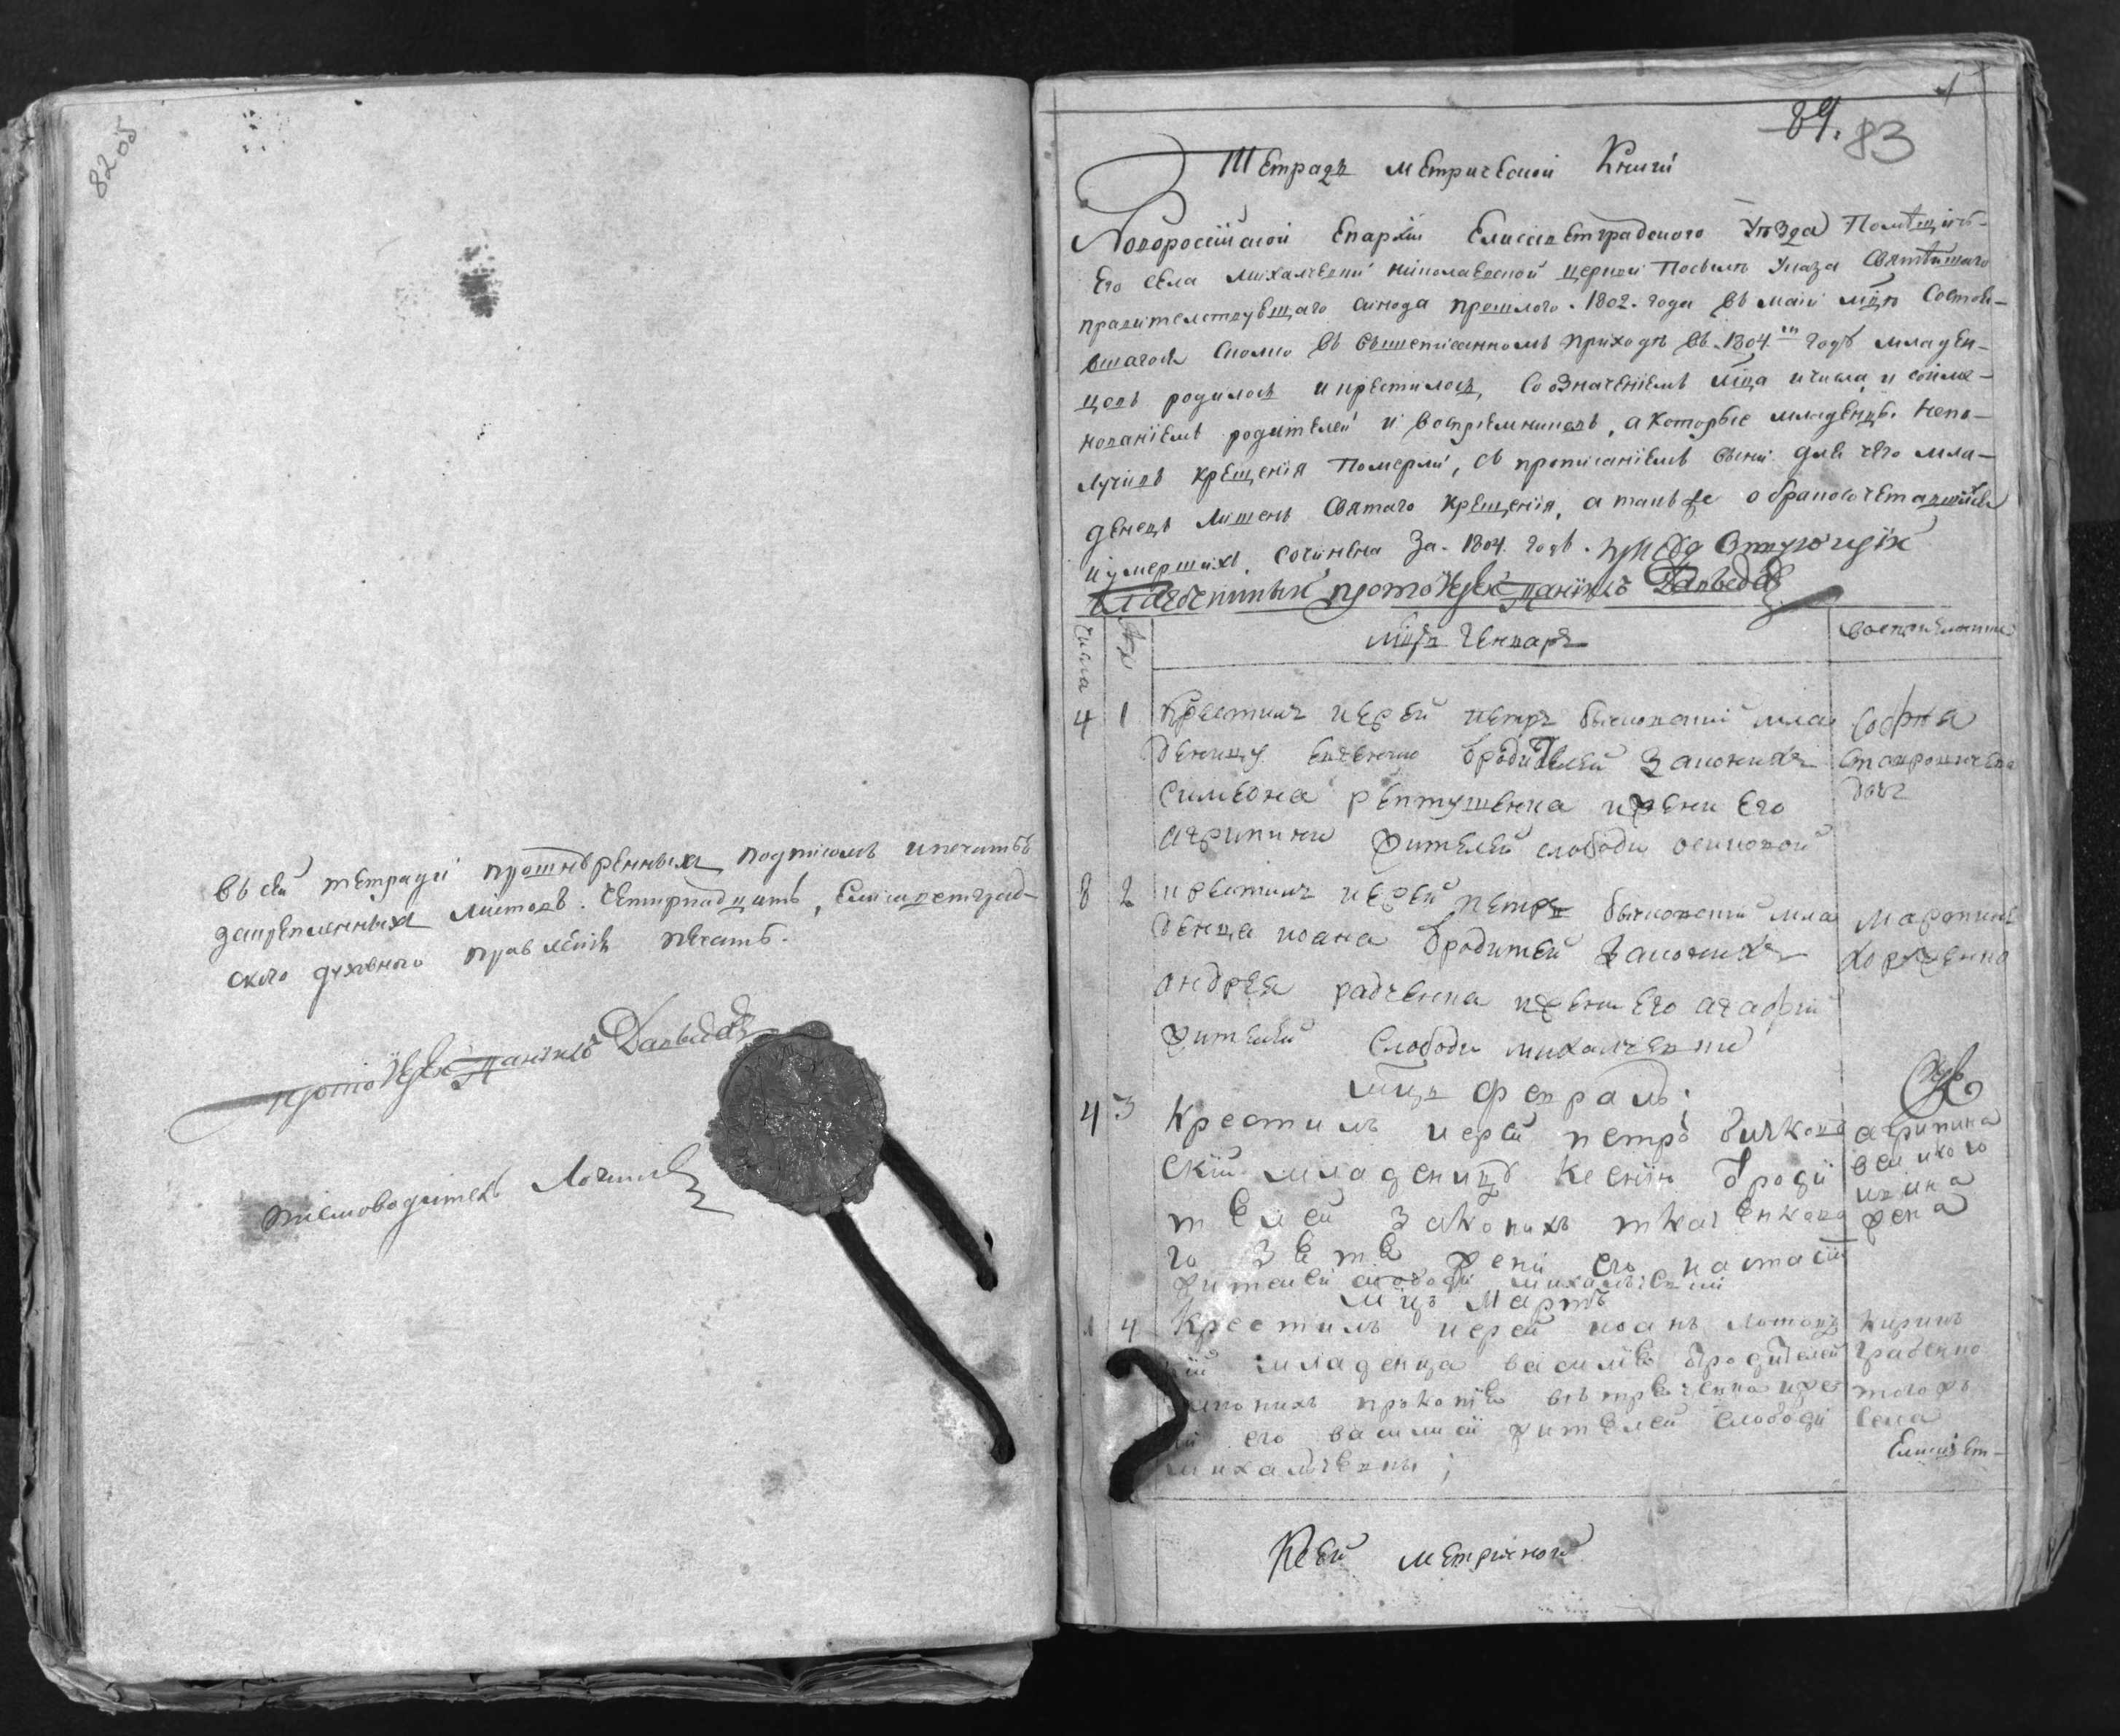 82об
въ сей тетради прошнѣренныхъ подписомъ ипечатью
закрепленныхъ листовъ. Четирнадцать, Елисаветград-
ского духовного правленія печать.
протоіерей Даніилъ
писмоводитель
1
84. 83
Тетрадь метрической Книги
Новороссійской Епархіи Елисаветградского Уѣзда Помѣщич-
его села михалчевки николаевской церкви Посилѣ Указа Святѣйшаго
правителствующаго синода прошлого. 1802. года въ маіи мцѣ Состояв-
шагося Сколко въ вышеписанномъ приходѣ въ. 1804.м годѣ младен-
цовъ родилось икрестилось, Созначеніемъ мца ичисла, и сойме-
нованіемъ родителей и воспріемниковъ, а Которые младенцы. Непо-
лучивъ крещенія Померли, съ прописаніемъ вины для чего мла-
денецъ Лишенъ Святаго Крещенія, а также о бракосочетавшихся
иумершихъ, Сочинена За. 1804. годъ.
благочинный протоіерей Даніилъ
числа
мцъ Генварь
воспріемники
4 1 Крестилъ иерей петръ бычковский мла
деницу Евгению ѿродителей Законихъ
Симеона рептушенка ижени Его
агрипини жителей слободи осиковой
София
дочь
8 2 крестилъ иерей петръ бычковский мла
денца иоана ѿродитей Законихъ
андрея радченка ижени Его агафии
жителей Слободи михалчевки
мартинъ
хорженко
мцъ февраль.
4 3 Крестилъ иерей петръ бичков
скій младеницъ Ксенію ѿроди
телей Законихъ
жени его настасіи
жителей слободи михальчевки
агрипина
великого
ивана
жена
мцъ Мартъ
1 4 Крестилъ иерей иоанъ
младенца василія ѿродителей
законихъ прокопія иже
ни его василисй жителей слободи
михальчевки;
Кирикъ
грабенко
тогожъ
села
Елисавет-
Ксей метричной